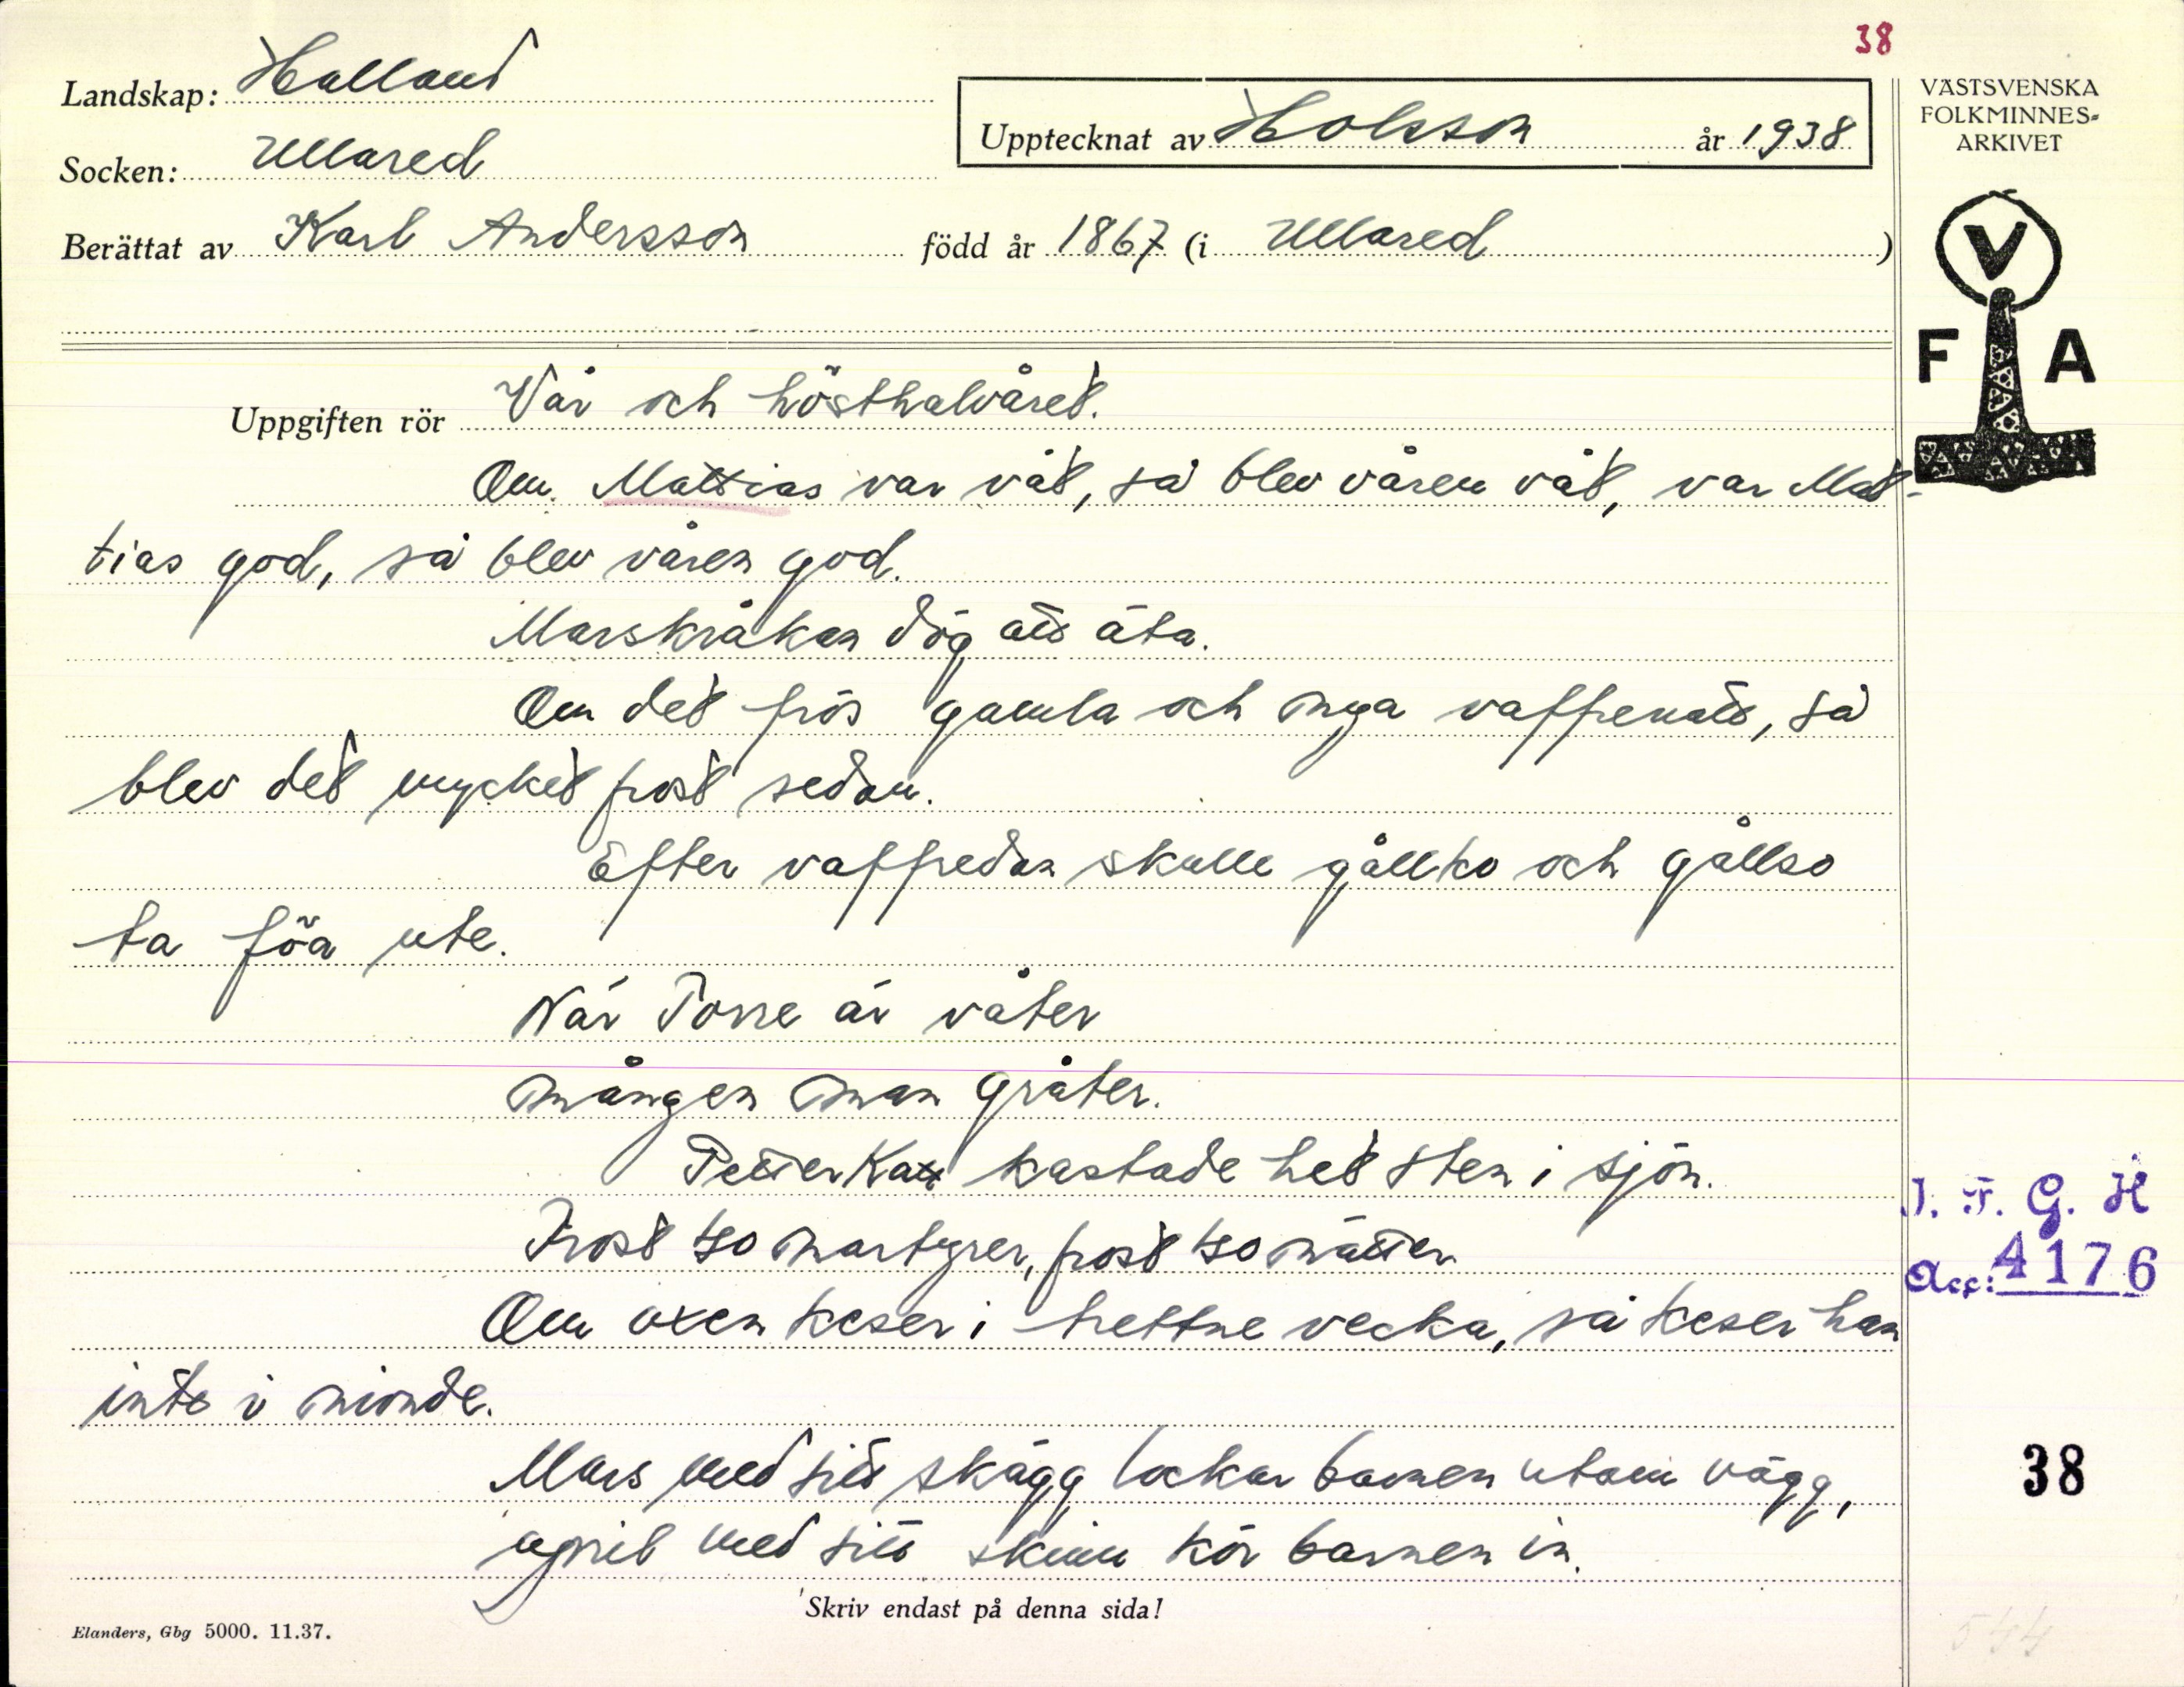 38
Landskap: Halland
VÄSTSVENSKA
FOLKMINNES-
ARKIVET
Upptecknat av Holsson år 1938
Socken: Ullared
Berättat av Karl Andersson född år 1867 (i Ullared )
V
F A
Uppgiften rör Vår och hösthalvåret.
Om Mattias var våt, så blev våren våt, var Mat-
tias god, så blev våren god.
Marskråkan dög att äta.
Om det frös gamla och nya vaffrenatt, så
blev det mycket frost sedan.
Efter vaffredan skulle gållko och gållso
ta föa ute.
När Torre är våter
mången man gråter.
Petter Katt kastade het sten i sjön.
Frost 40 martyrer, frost 40 nätter
Om oxen keser i trettne vecka, så keser han
inte i nionde.
Mars med sitt skägg lockar barnen utom vägg,
april med sitt skinn kör barnen in.
I. F. G. H
Acc: 4176
38
Skriv endast på denna sida!
Elanders, Gbg 5000. 11.37.
544